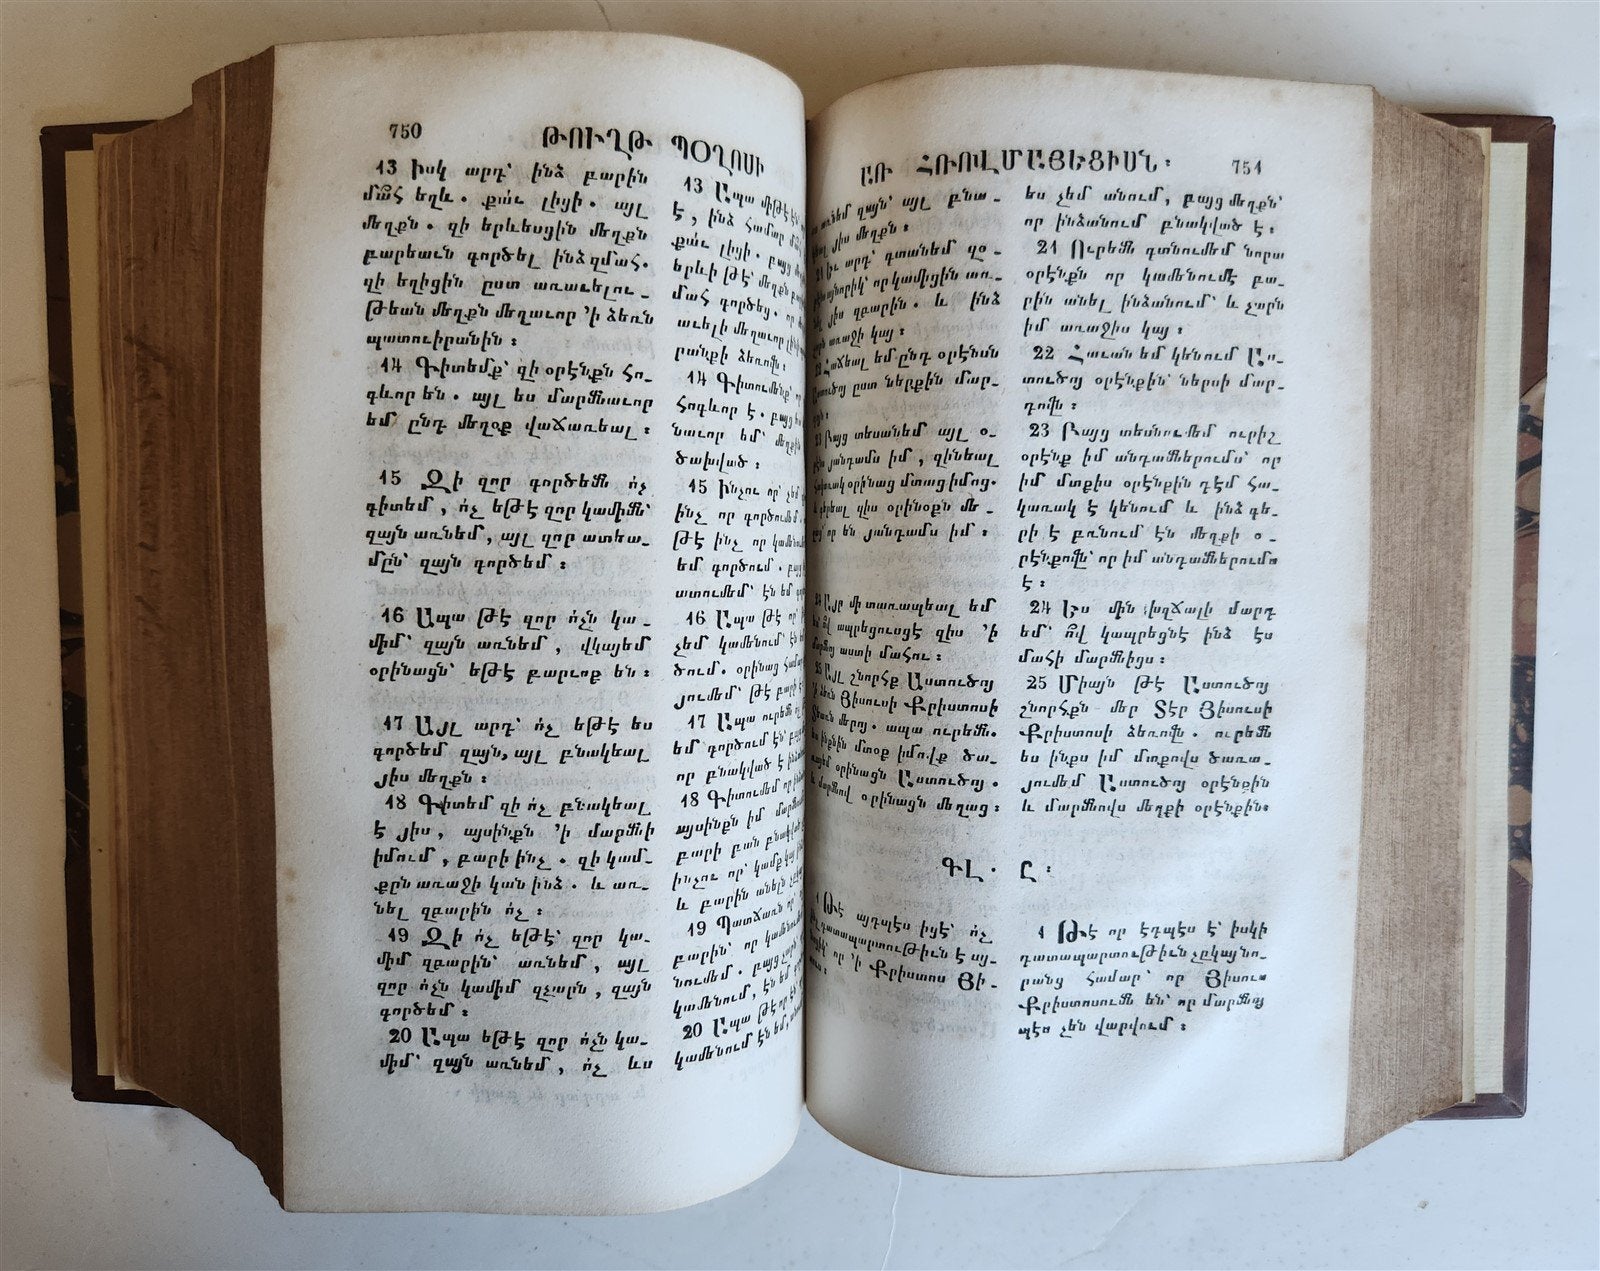 750
ԹՈՒՂԹ ՊՕՂՈՍԻ
13 Իսկ արդ՝ ինձ բարին
մահ եղև. քա՛ւ լիցի. այլ
մեղքն. զի երևեսցին մեղքն
բարեաւն գործել ինձ զմահ.
զի եղիցին ըստ առաւելու-
թեան մեղքն մեղաւոր ՚ի ձեռն
պատուիրանին։
14 Գիտեմք՝ զի օրէնքն հո-
գևոր են. այլ ես մարմնաւոր
եմ ընդ մեղօք վաճառեալ։
15 Զի զոր գործեմն ո՛չ
գիտեմ, ո՛չ եթէ զոր կամիմն՝
զայն առնեմ, այլ զոր ատեա-
մըն՝ զայն գործեմ։
16 Ապա թէ զոր ո՛չն կա-
միմ՝ զայն առնեմ, վկայեմ
օրինացն՝ եթէ բարւոք են։
17 Այլ արդ՝ ո՛չ եթէ ես
գործեմ զայն, այլ բնակեալ
յիս մեղքն։
18 Գիտեմ զի ո՛չ բնակեալ
է յիս, այսինքն ՚ի մարմնի
իմում, բարի ինչ. զի կամ-
քըն առաջի կան ինձ. և առ-
նել զբարին ո՛չ։
19 Զի ո՛չ եթէ՝ զոր կա-
միմ զբարին՝ առնեմ, այլ
զոր ո՛չն կամիմ զչարն, զայն
գործեմ։
20 Ապա եթէ զոր ո՛չն կա-
միմ՝ զայն առնեմ, ո՛չ ևս
13 Ապա միթէ
է, ինձ համար մահ
քա՛ւ լիցի. բայց
երևի թէ՝ մեղքն
մահ գործեց. որ
աւելի մեղաւոր
րանքի ձեռովն։
14 Գիտումենք՝ որ
հոգևոր է. բայց
նաւոր եմ՝ մեղքին
ծախված։
15 Ինչու որ՝ չեմ
ինչ որ գործումեմ.
թէ ինչ որ կամենում
եմ գործում. բայց
ատումեմ՝ էն եմ
16 Ապա թէ որ՝
չեմ կամենում՝ էն
ծում. օրինաց համար
յումեմ՝ թէ բարի
17 Ապա ուրեմն ո՛չ
եմ գործում էն՝ բայց
որ բնակված է
18 Գիտումեմ որ
այսինքն իմ մարմնի
բարի բան բնակված
ինչու որ՝ կամք կայ
և բարին անելն
19 Պատճառն որ՝
բարին՝ որ կամենում
նումեմ. բայց չարն
կամենում, էն եմ
20 Ապա թէ որ էն
կամենում էն եմ,
ԱՌ ՀՌՈՎՄԱՅԵՑԻՍՆ։
751
առնեմ զայն՝ այլ բնա-
յիս մեղքն։
արդ՝ գտանեմ զօ-
որ կամիցին առ-
զբարին. և ինձ
առաջի կայ։
22 Հաճեալ եմ ընդ օրէնսն
Աստուծոյ ըստ ներքին մար-
23 Բայց տեսանեմ այլ օ-
յանդամս իմ, զինեալ
հակառակ օրինաց մտաց իմոց.
զիս օրինօքն մե-
որ են յանդամս իմ։
24 Այր մի տառապեալ եմ
ո՞վ ապրեցուսցէ զիս ՚ի
մարմնոյ աստի մահու։
25 Այլ շնորհք Աստուծոյ
՚ի ձեռն Յիսուսի Քրիստոսի
Տեառն մերոյ. ապա ուրեմն.
ես ինքնին մտօք իմովք ծա-
ռայեմ օրինացն Աստուծոյ.
և մարմնով օրինացն մեղաց։
ես չեմ անում, բայց մեղքն՝
որ ինձանում բնակված է։
21 Ուրեմն գտնումեմ նորա
օրէնքն որ կամենումէ բա-
րին անել ինձանում՝ և չարն
իմ առաջիս կայ։
22 Հաւան եմ կենում Աս-
տուծոյ օրէնքին՝ ներսի մար-
դովն։
23 Բայց տեսնումեմ ուրիշ
օրէնք իմ անդամներումս՝ որ
իմ մտքիս օրէնքին դէմ հա-
կառակ է կենում և ինձ գե-
րի է բռնում էն մեղքի օ-
րէնքովն՝ որ իմ անդամներումս
է։
24 Ես մին խղճալի մարդ
եմ՝ ո՞վ կապրեցնէ ինձ էս
մահի մարմնիցս։
25 Միայն թէ Աստուծոյ
շնորհքն մեր Տէր Յիսուսի
Քրիստոսի ձեռովն. ուրեմն
ես ինքս իմ մտքովս ծառա-
յումեմ Աստուծոյ օրէնքին
և մարմնովս մեղքի օրէնքին։
ԳԼ. Ը։
1 Թէ այդպէս իցէ՝ ո՛չ
դատապարտութիւն է այ-
որ ՚ի Քրիստոս Յի-
1 Թէ որ էդպէս է՝ իսկի
դատապարտութիւն չըկայ նո-
րանց համար՝ որ Յիսուս
Քրիստոսումն են՝ որ մարմնոյ
պէս չեն վարվում։